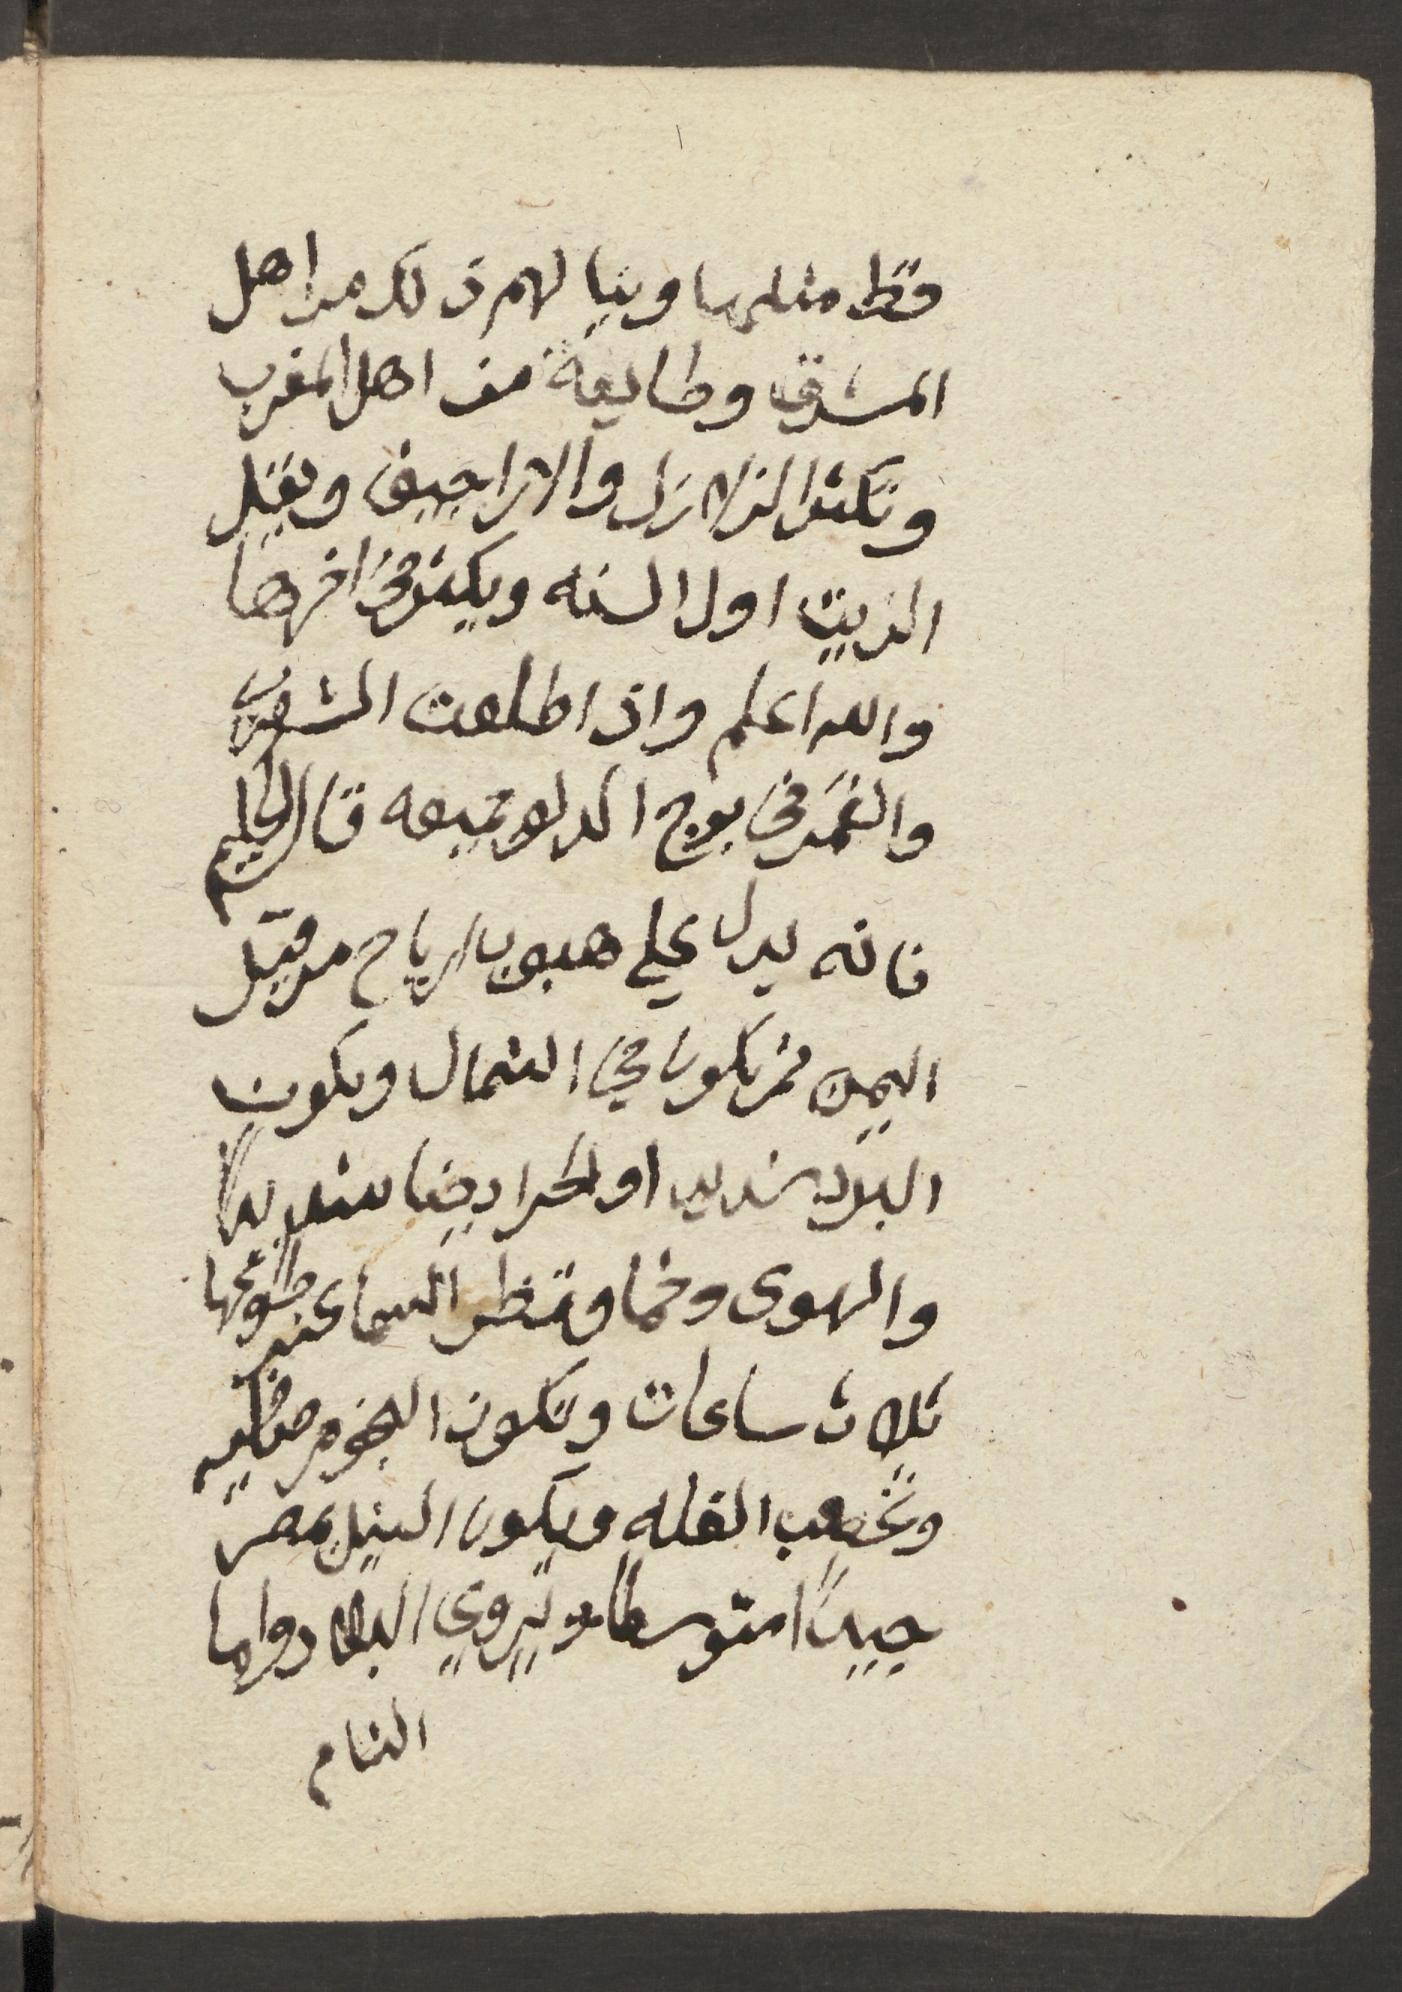 قط مثلها وينالهم ذلك من اهل
المشرق وطايفة من اهل المغرب
وتكثر الزلازل والاراجيف ويقل
الزيت اول السنه ويكثر في اخرها
والله اعلم واذا طلعت الشعرى
والقمر في برج الدلو جميعه قال الحكيم
فانه يدل علي هبوب ارياح من قبل
اليمن ثم يكون في الشمال ويكون
البرد شديد او الحر ايضا شديدا
والهوى وخما وتمطر السما عند طلوعها
ثلاث ساعات وتكون النجوم صافيه
وتخصب الغله ويكون النيل بمصر
جيدا متوسطا ويروي البلاد واما
الشام